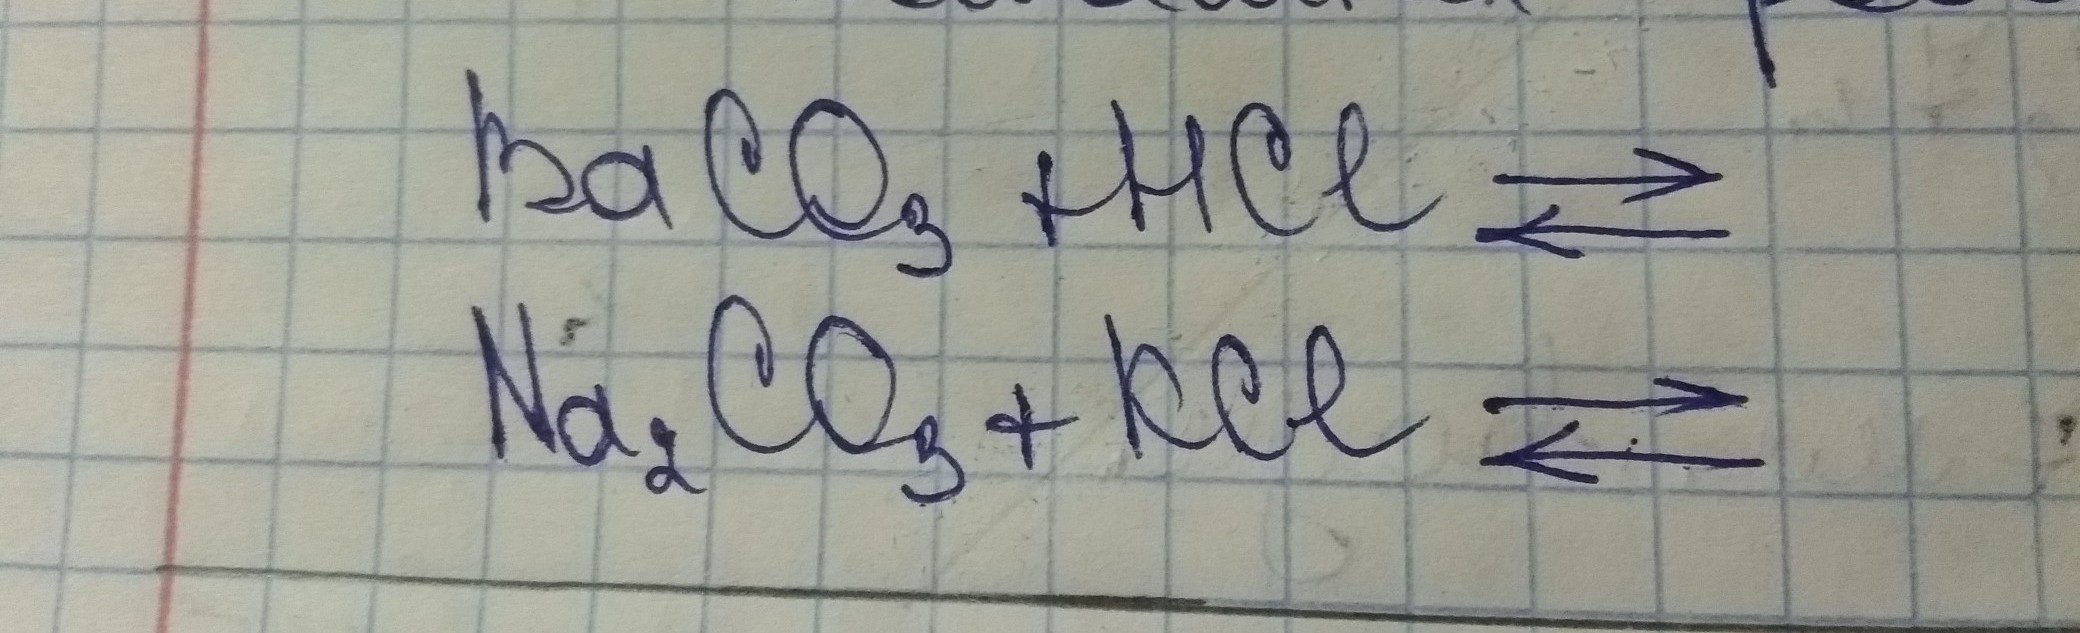 BaCO₃ + HCl ⇄
Na₂CO₃ + KCl ⇄